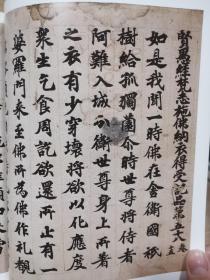 賢愚經梵志施佛納衣得受記品第五十八
如是我聞一時佛在舍衛國祇
樹給孤獨園尒時世尊將侍者
阿難入城乞食世尊身上所著
之衣有少穿壞將欲以化應度
衆生乞食周訖欲還所止有一
婆羅門來至佛所爲佛作礼覩